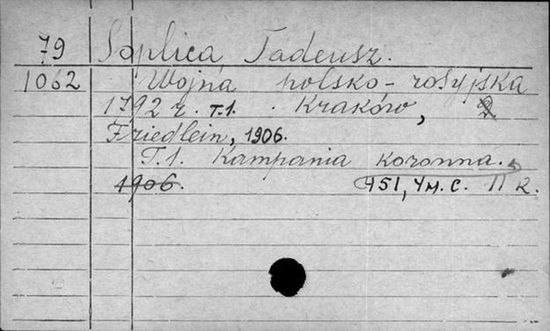 79 Soplica Tadeusz.
1062 Wojna polsko-rosyjska
1792 r. T.1. Kraków, 2
Friedlein, 1906.
T.1. Kampania koronna.
1906. 451, 4м. с. II R.